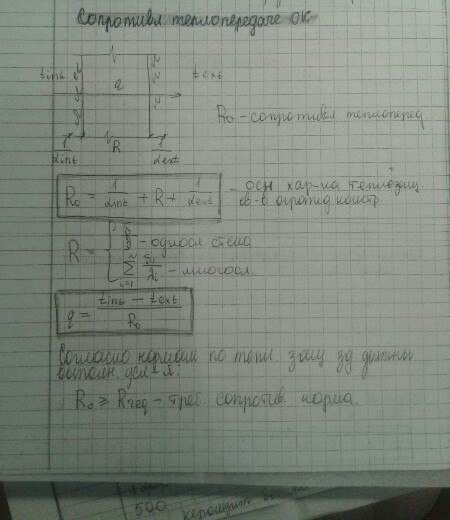 Сопротивл теплопередаче ОК
tint q text
R₀ - сопротивл теплоперед
1/αint R 1/αext
R₀ = 1/αint + R + 1/αext - осн хар-ка теплозащ.
св-в огражд констр
R = { δ/λ - односл стена
∑ i=1 N δi/λi - многосл
q = (tint - text)/R₀
Согласно нормам по тепл защ зд должны
выполн. усл
R₀ ≥ Rreq - треб сопротив норма.
500 керамзит